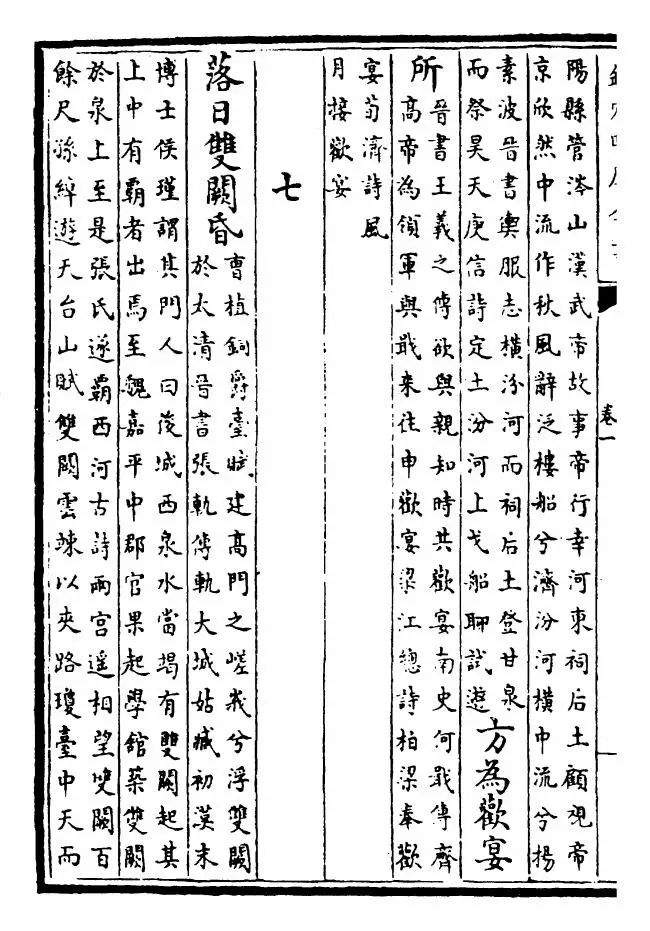 陽縣管涔山漢武帝故事帝行幸河東祠后土顧視帝
京欣然中流作秋風辭泛樓船兮濟汾河橫中流兮揚
素波晉書輿服志橫汾河而祠后土登甘泉
而祭昊天庾信詩定土汾河上戈船聊試遊
方為歡宴
所
晉書王羲之傳欲與親知時共歡宴南史何戢傳齊
高帝為領軍與戢来往申歡宴梁江總詩柏梁奉歡
宴荀濟詩風
月接歡宴
七
落日雙闕昏
曹植銅爵臺賦建高門之嵯峩兮浮雙闕
於太清晉書張軌傳軌大城姑臧初漢末
博士侯瑾謂其門人曰後城西泉水當竭有雙闕起其
上中有霸者出焉至魏嘉平中郡官果起學館築雙闕
於泉上至是張氏遂霸西河古詩兩宮遥相望雙闕百
餘尺孫綽遊天台山賦雙闕雲竦以夾路瓊臺中天而
卷一